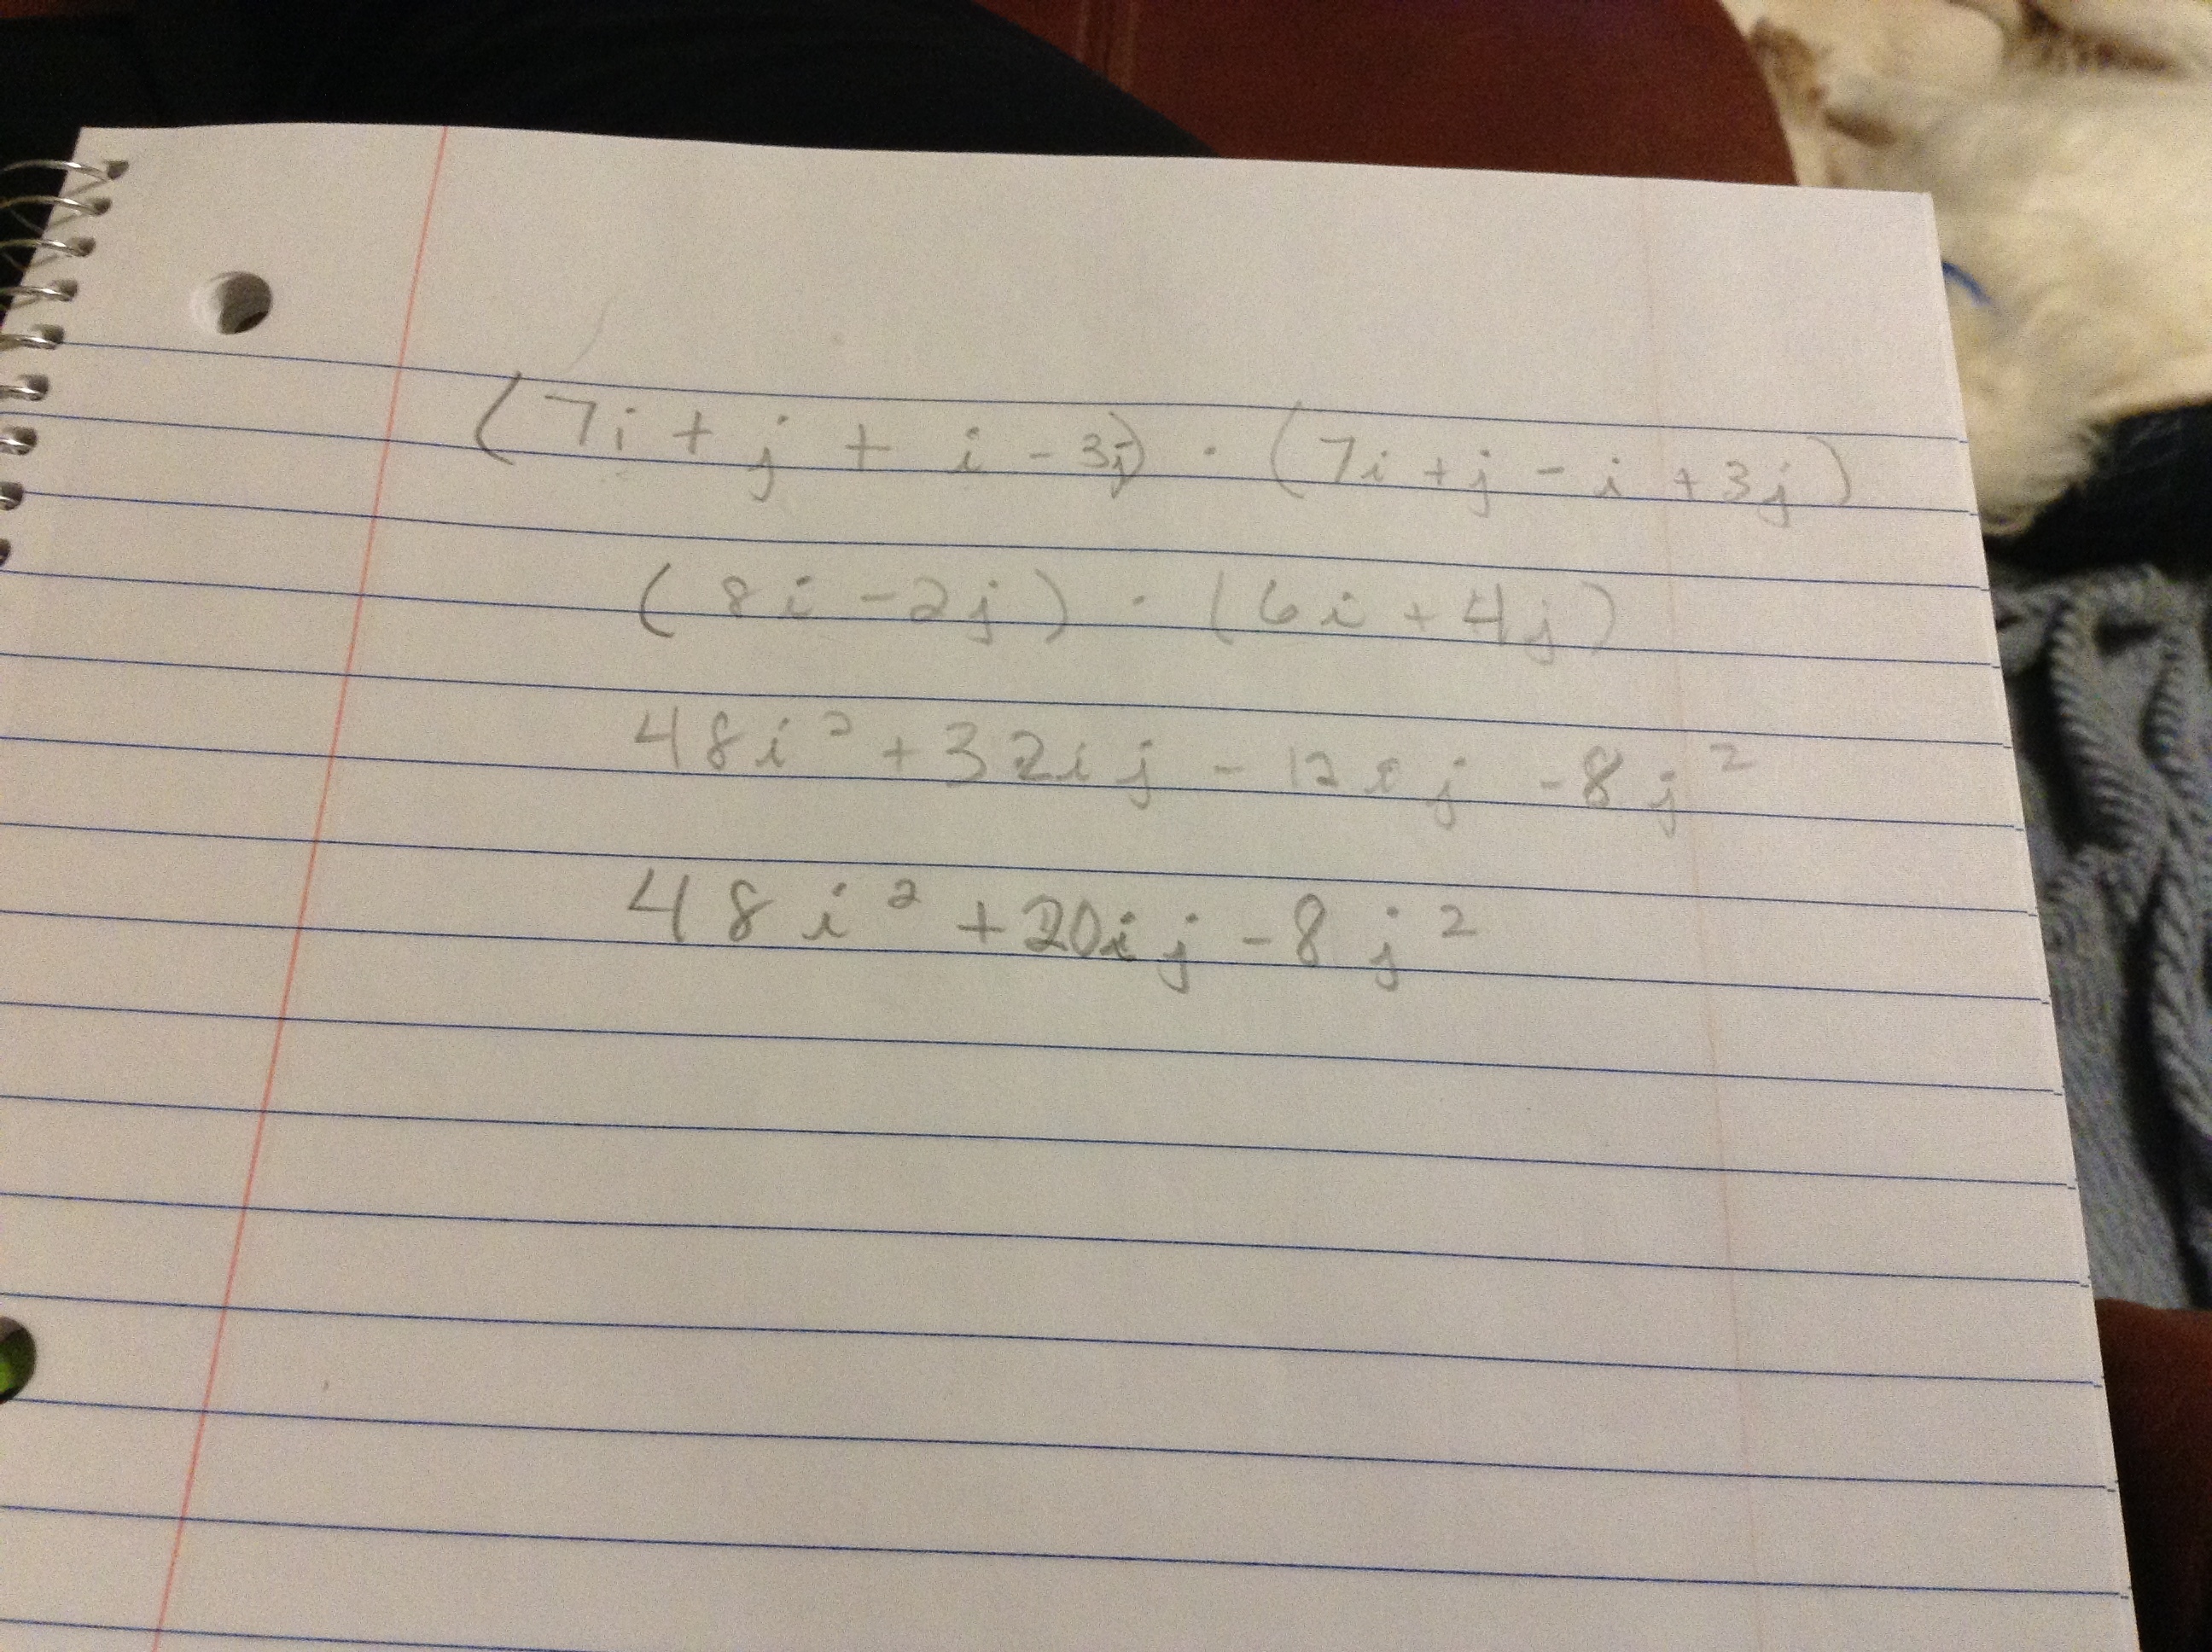 (7i + j + i - 3j) · (7i + j - i + 3j)
(8i - 2j) · (6i + 4j)
48i² + 32ij - 12ij - 8j²
48i² + 20ij - 8j²